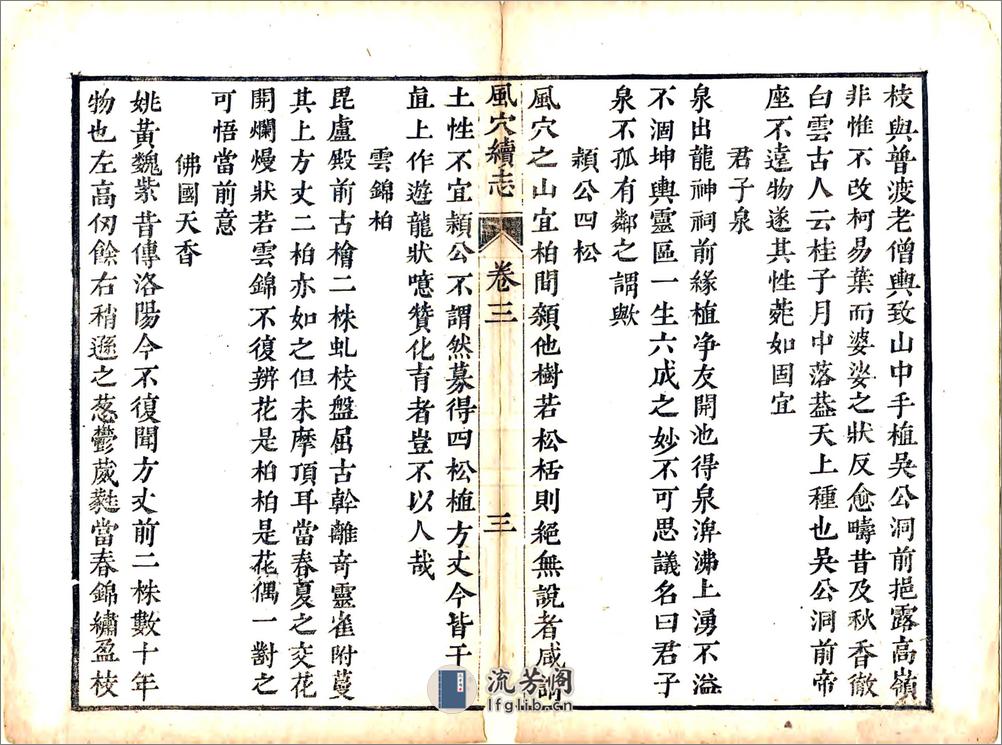 枝與普渡老僧輿致山中手植吳公洞前挹露高嶺
非惟不改柯易葉而婆娑之狀反愈疇昔及秋香徹
白雲古人云桂子月中落葢天上種也吳公洞前帝
座不遠物遂其性蕤如固宜
君子泉
泉出龍神祠前緣植净友開池得泉渒沸上湧不溢
不涸坤輿靈區一生六成之妙不可思議名曰君子
泉不孤有鄰之謂歟
穎公四松
風穴之山宜柏間纇他樹若松栝則絕無說者咸謂
風穴續志 卷三 三
土性不宜穎公不謂然募得四松植方丈今皆千
直上作遊龍狀噫贊化育者豈不以人哉
雲錦柏
毘盧殿前古檜二株虬枝盤屈古幹離奇靈雀附蔓
其上方丈二柏亦如之但未摩頂耳當春夏之交花
開爛熳狀若雲錦不復辨花是柏柏是花偶一對之
可悟當前意
佛國天香
姚黃魏紫昔傳洛陽今不復聞方丈前二株數十年
物也左高仞餘右稍遜之葱鬱葳蕤當春錦繡盈枝
流芳阁
lfglib.cn